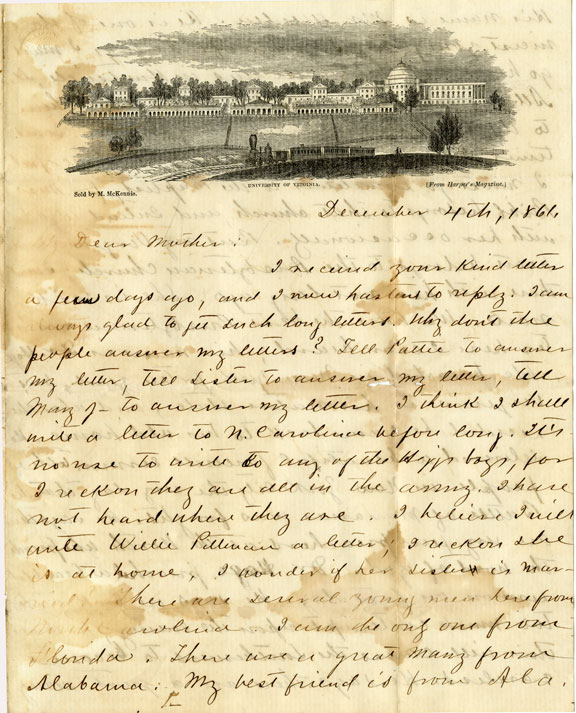 UNIVERSITY OF VIRGINIA.
Sold by M. McKennie.
(From Harper's Magazine.)
December 4th, 1861,
Dear Mother:
I received your kind letter
a few days ago, and I now hasten to reply. I am
always glad to get such long letters. Why don't the
people answer my letters? Tell Pattie to answer
my letter, tell Sister to answer my letter, tell
Mary J— to answer my letter. I think I shall
write a letter to N. Carolina before long. It's
no use to write to any of the boys, for
I reckon they are all in the army. I have
not heard where they are. I believe I will
write Willie Pittman a letter; I reckon she
is at home, I wonder if her sister is mar-
There are several young men here from
I am the only one from
Florida. There are a great many from
Alabama. My best friend is from Ala.